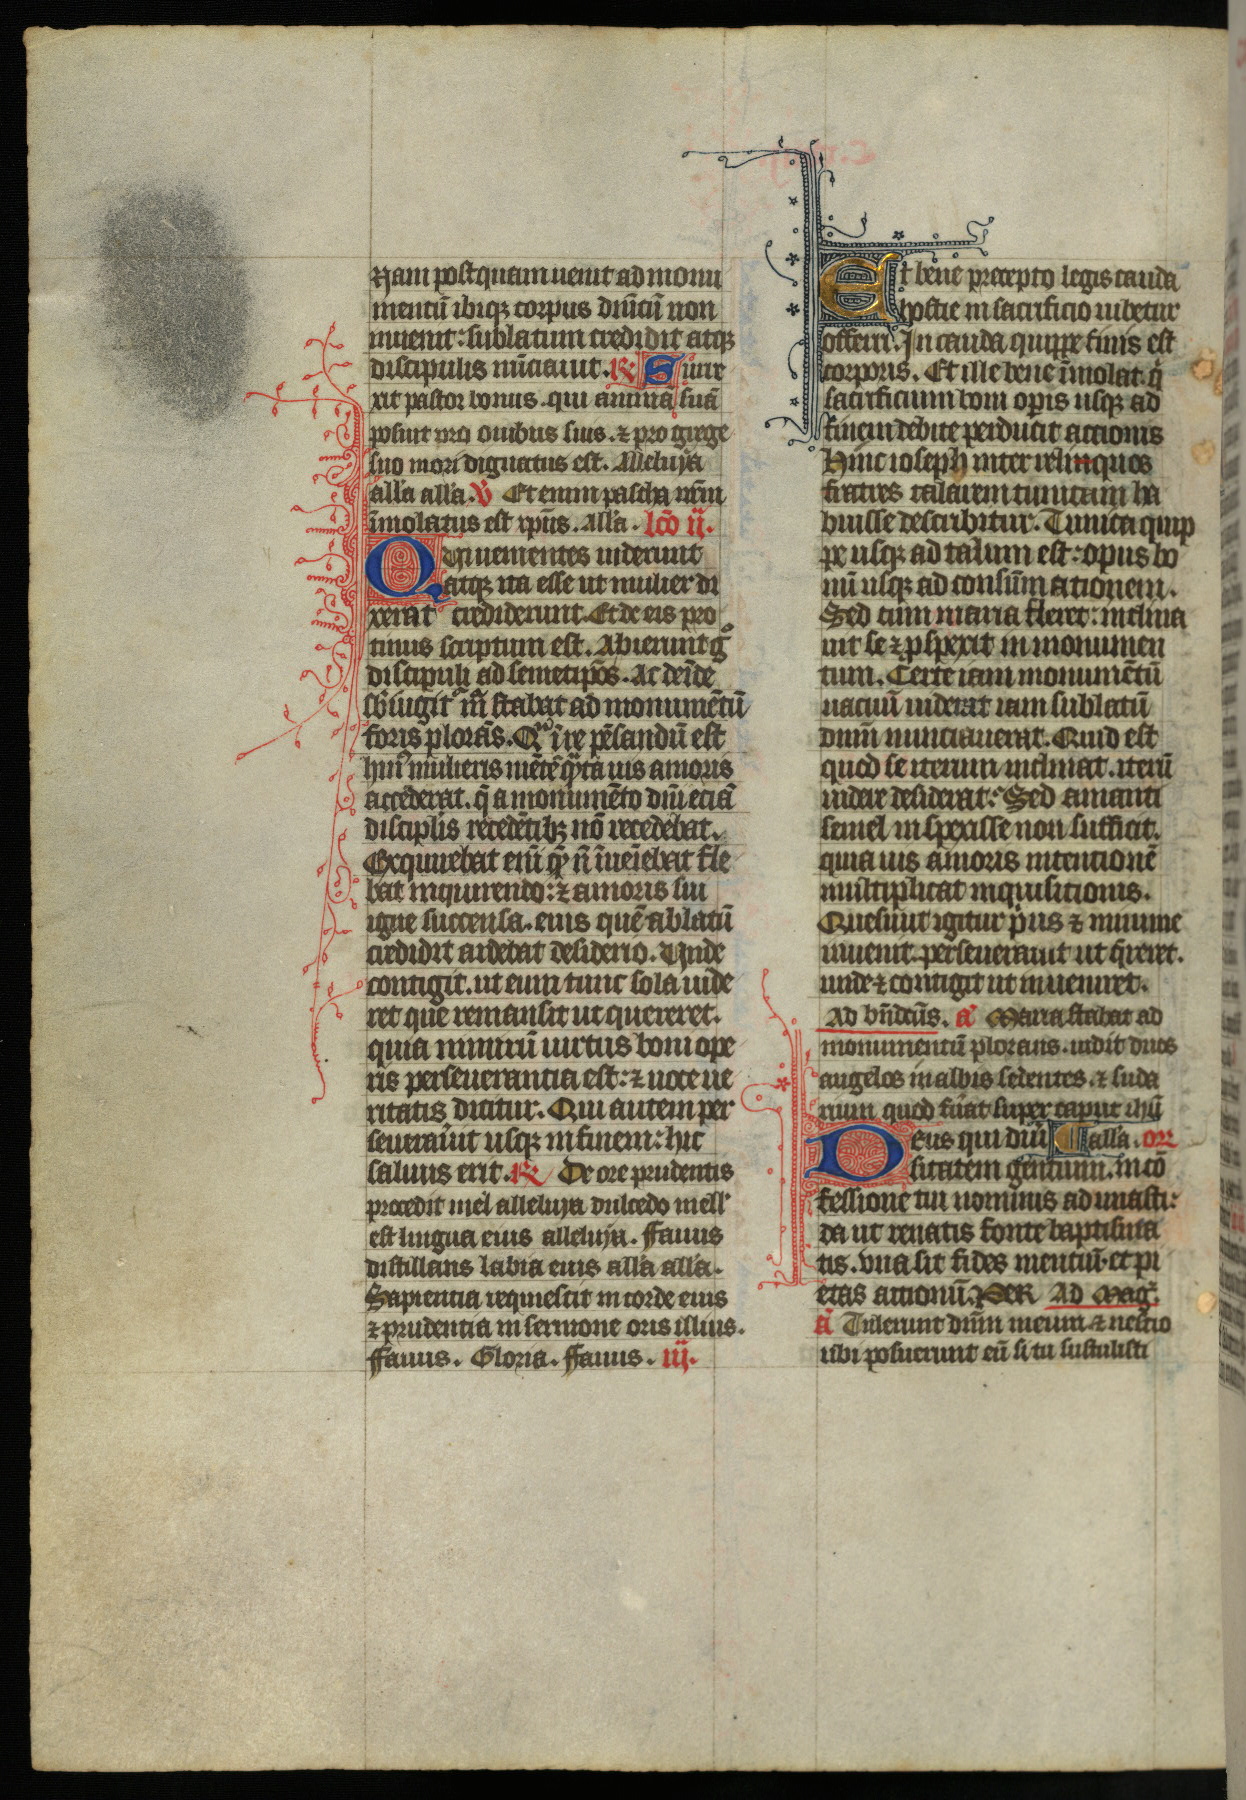 nam postquam uenit ad monu
mentū ibiqȝ corpus dn̄icū non
inuenit: sublatum credidit atqȝ
discipulis nūciauit. ℟ Surre
xit pastor bonus. qui animā suā
posuit pro ouibus suis. ⁊ pro grege
suo mori dignatus est. Alleluya
all'a all'a. ℣ Etenim pascha nr̄m
īmolatus est xp̄us. All'a. lcō ij.
Qui uenientes uiderunt
atqȝ ita esse ut mulier di
xerat crediderunt. Et de eis pro
tinus scriptum est. Abierunt gͦ
discipuli ad semetip̄os. Ac dein̄de
sb̄iūgit͛ m̄ stabat ad monumētū
foris plorās. Qͣ ī re pēsandū est
hui͛ mulieris mētē q̄nta uis amoris
accēderat. q̄ a monumēto dn̄i eciā
discipl̄is recedētibȝ nō recedebat.
Exquirebat em̄ quē n̄ īueīebat fle
bat inquirendo: ⁊ amoris sui
igne succensa. eius quē ablatū
credidit ardebat desiderio. Vnde
contigit. ut eum tunc sola uide
ret que remansit ut quereret.
quia nimirū uirtus boni ope
ris perseuerantia est: ⁊ uoce ue
ritatis dicitur. Qui autem per
seuerau̇it usqȝ in finem: hic
saluus erit. ℟ De ore prudentis
procedit mel alleluya dulcedo mell'
est lingua eius alleluya. ffauus
distillans labia eius all'a all'a.
Sapientia requiescit in corde eius
⁊ prudentia in sermone oris illius.
ffauus. Gloria. ffauus. iij.
Et bene precepto legis cauda
hostie in sacrificio iubetur
offerri. In cauda quippe finis est
corporis. Et ille bene īmolat. q̇
sacrificium boni opis usqȝ ad
finem debite perducit actionis
Hinc ioseph inter reliquos
fratres talarem tunicam ha
buisse describitur. Tunica quip
pe usqȝ ad talum est: opus bo
nū usqȝ ad consūmationem.
Sed cum maria fleret: inclina
uit se ⁊ p̱spexit in monumen
tum. Certe iam monumētū
uacuū uiderat iam sublatū
dnm̄ nunciauerat. Quid est
quod se iterum inclinat. iterū
uidere desiderat: Sed amanti
semel inspexisse non sufficit.
quia uis amoris intentionē
multiplicat inquisitionis.
Quesiuit igitur p̍us ⁊ minime
inuenit. perseuerauit ut q̄reret.
unde ⁊ contigit ut inueniret.
Ad bn̄dcūs. a͛ Maria stabat ad
monumentū plorans. uidit duos
angelos in albis sedentes. ⁊ suda
rium quod fūat super caput ihū
Deus qui diū all'a. or͛
sitatem gentium. in cō
fessione tui nominis adunasti:
da ut renatis fonte baptisma
tis. vna sit fides mentiū. et pi
etas actionū. PER Ad Mag͛.
a͛ Tulerunt dnm̄ meum ⁊ nescio
ubi posuerunt eū si tu sustulisti